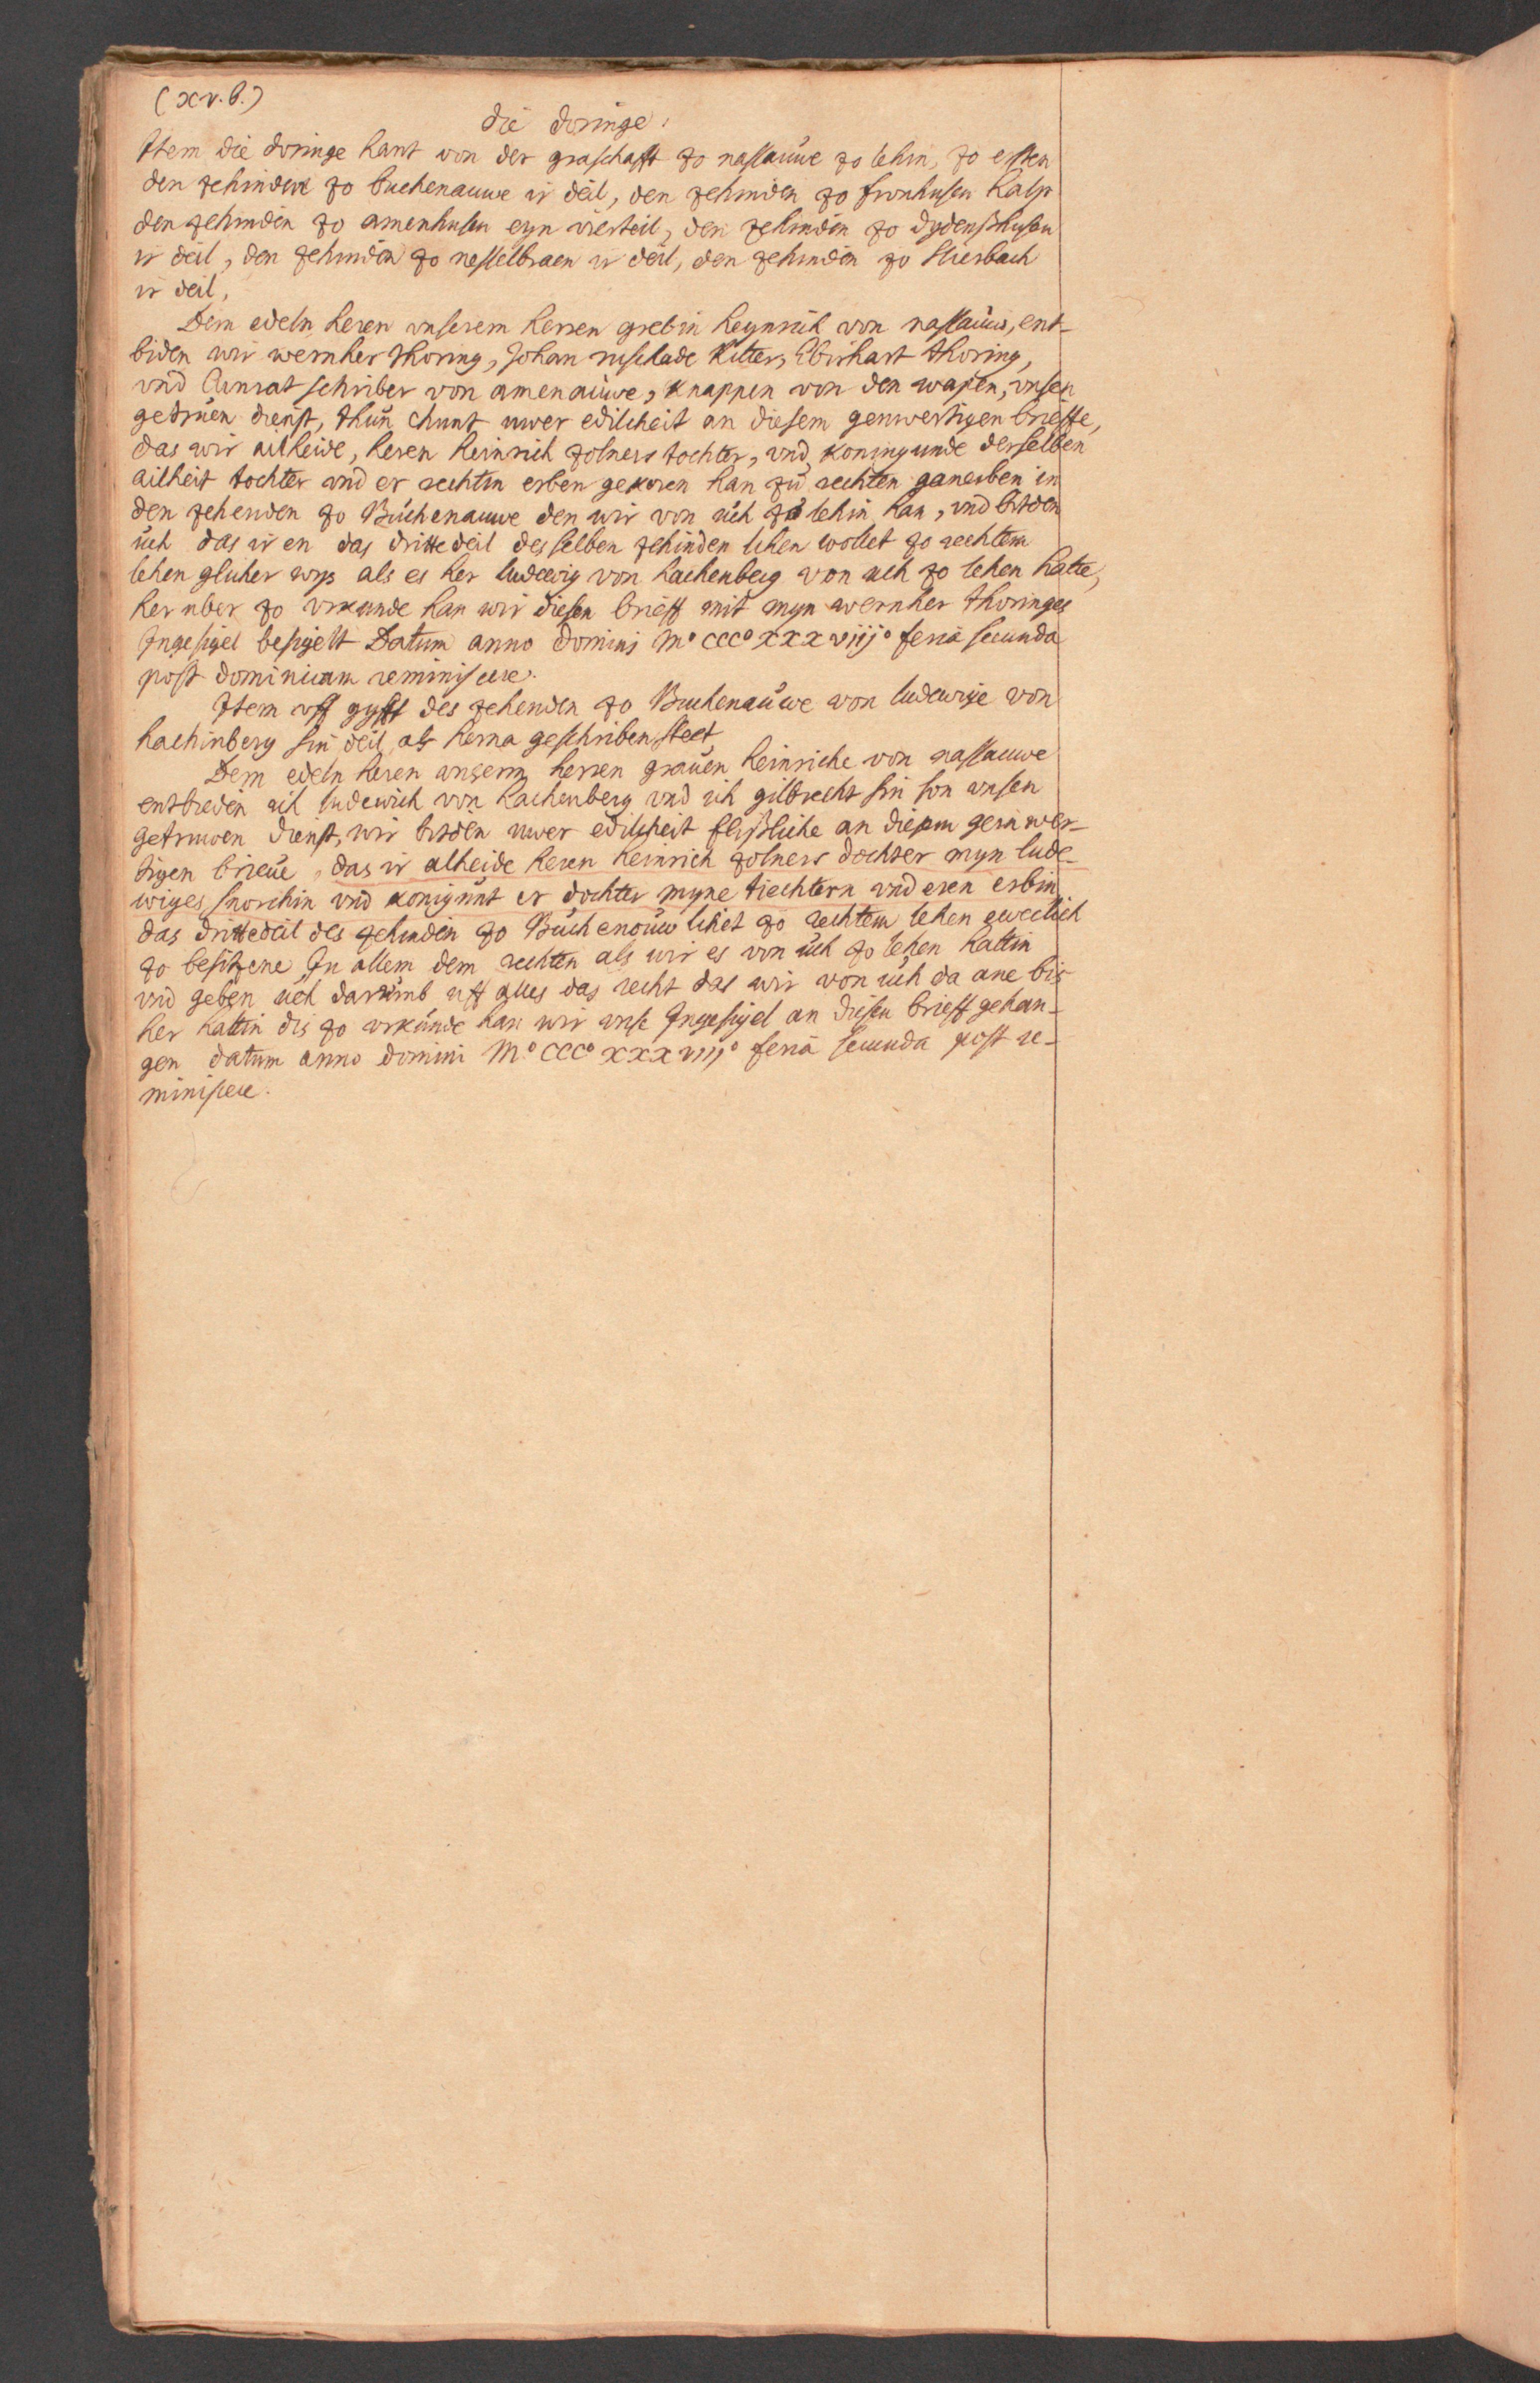 (xv.b.)
die doringe.
Item die doringe hant von der graschafft zo nassauwe zo lehin, zo ersten
den zehinden zo buchenauwe ir deil, den zehinden zo fronhusen halp
den zehinden zo amenhusen eyn vierteil, den zehinden zo dydenßhusen
ir deil, den zehinden zo nesselbraen ir deil, den zehinden zo
ir deil,
Dem edeln heren vnserem herren grebin heynrich von nassauw, ent-
biden wir wernher thoring, Johan ruschade Ritter, Ebirhart thoring,
vnd Cunrat schriber von amenauwe, knappen von den wapen, vnsen
getruen dienst, thun chunt uwer edilcheit an diesem genwertigen brieffe,
das wir ailheide, heren heinrich zolners tochter, vnd koningunde derselben
ailheit tochter vnd er rechten erben gekoren han zu rechten ganerben in
den zehenden zo Buchenauwe den wir von uch zo lehin han, vnd bitden
uch das ir en das dritte deil desselben zehinden lihen wollet zo rechtem
lehen glicher wys als es her ludewig von hachenberg von uch zo lehen hatte,
her uber zo vrkunde han wir diesen brieff mit myn wernher thoringes
Ingesigel besigelt Datum anno domini Mº CCCº xxxviijº feria secunda
post dominicam reminiscere.
Item vff gyfft des zehenden zo Buchenauwe von ludewige von
hachinberg sin deil, als herna geschriben steet,
Dem edeln heren vnserm herren grauen heinriche von nassauwe
entbieden ich ludewich von hachenberg vnd ich gilbrecht sin son vnsen
getruwen dienst, wir bitden uwer edilcheit flißliche an diesem geinwer-
tigen brieue, das ir alheide heren heinrich zolners dochter myn lude-
wiges snorchin vnd konigunt er dochter myne tiechtern vnd eren erbin
das drittedeil des zehinden zo Buchenouw lihet zo rechtem lehen eweclich
zo besitzene In allem dem rechten als wir es von uch zo lehen hattin
vnd geben uch darumb uff alles das recht das wir von uch da ane bis
her hattin dis zo vrkunde han wir vnse Ingesigel an diesen brieff gehan-
gen datum anno domini Mº CCCº xxxviijº feria secunda post re-
miniscere.